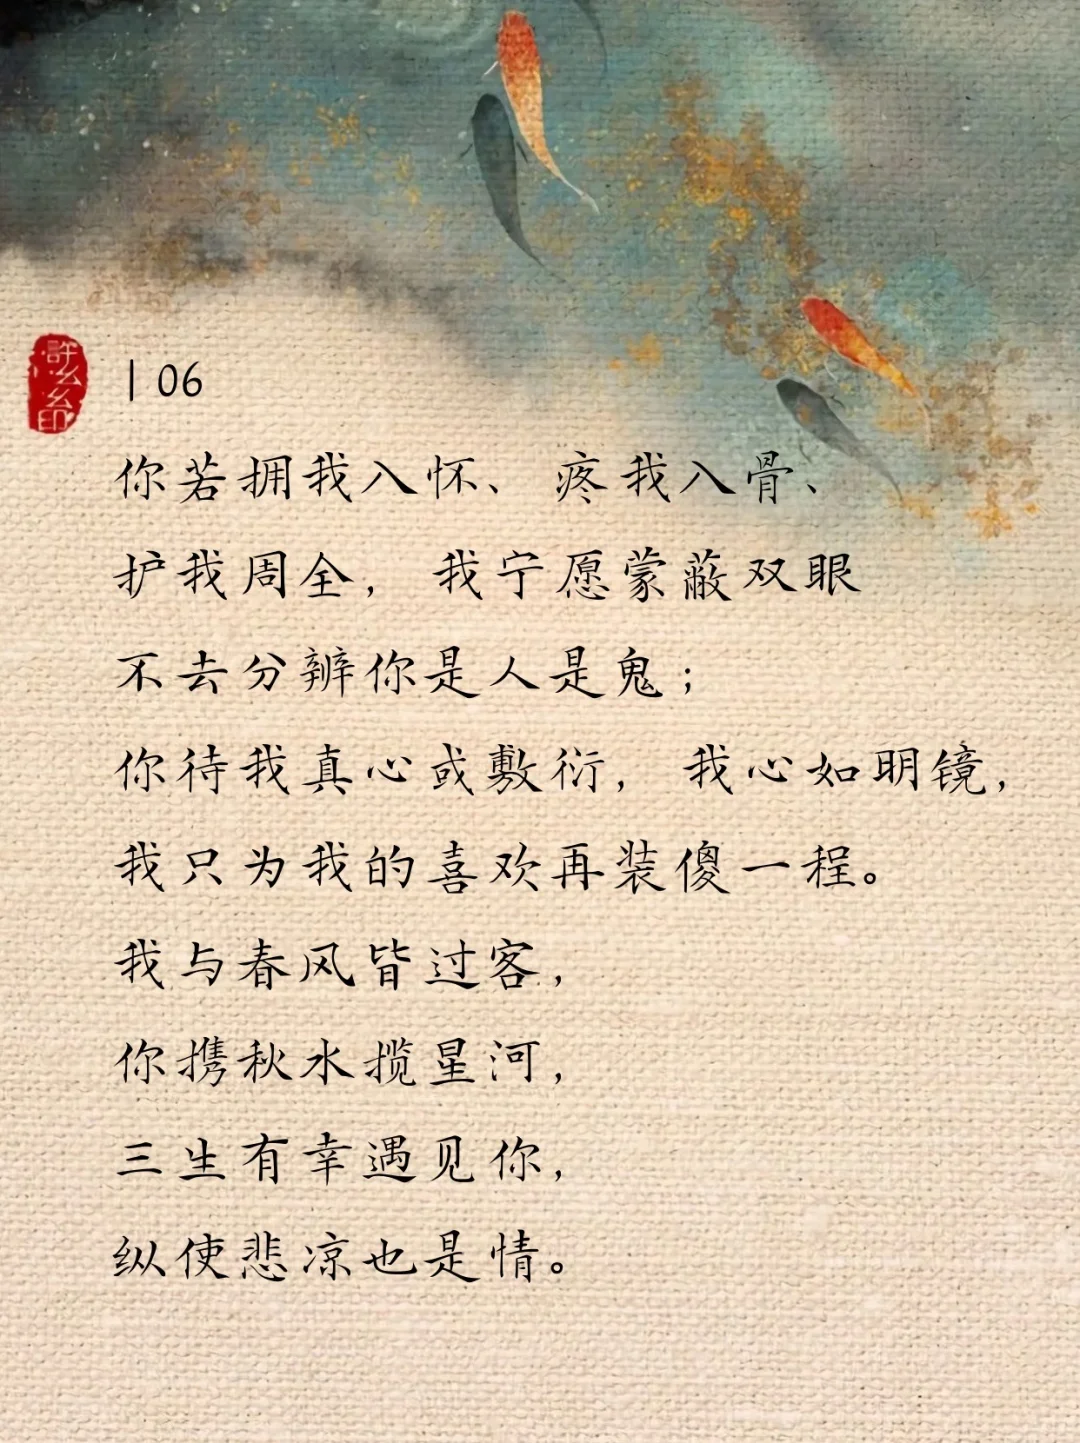 許幺幺印
| 06
你若拥我入怀、疼我入骨、
护我周全，我宁愿蒙蔽双眼
不去分辨你是人是鬼；
你待我真心或敷衍，我心如明镜，
我只为我的喜欢再装傻一程。
我与春风皆过客，
你携秋水揽星河，
三生有幸遇见你，
纵使悲凉也是情。